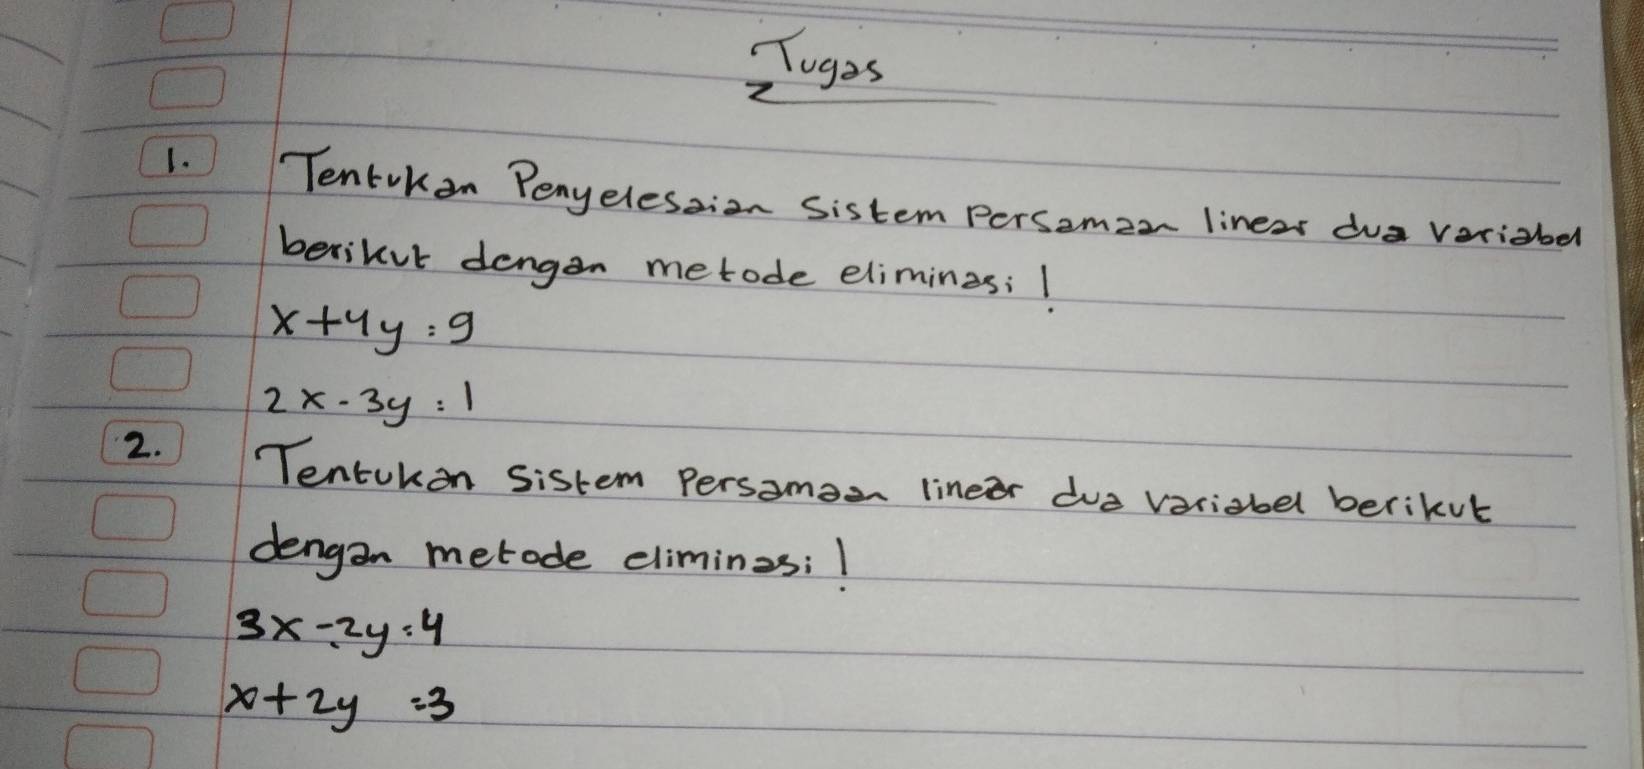 Tugas
1. Tentukan Penyelesaian Sistem Persamaan linear dua variabel
berikut dengan metode eliminasi!
x+4y=9
2x-3y=1
2. Tentukan Sistem Persamaan linear dua variabel berikut
dengan metode eliminasi!
3x-2y=4
x+2y =3